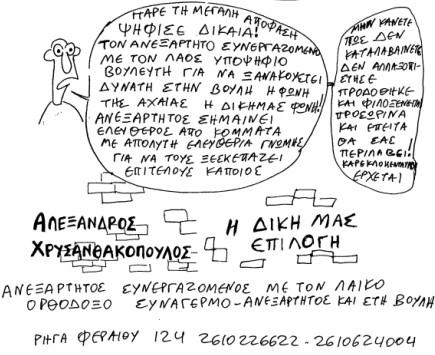 ΠΑΡΕ ΤΗ ΜΕΓΑΛΗ ΑΠΟΦΑΣΗ
ΨΗΦΙΣΕ ΔΙΚΑΙΑ!
ΤΟΝ ΑΝΕΞΑΡΤΗΤΟ ΣΥΝΕΡΓΑΖΟΜΕΝΟ
ΜΕ ΤΟΝ ΛΑΟΣ ΥΠΟΨΗΦΙΟ
ΒΟΥΛΕΥΤΗ ΓΙΑ ΝΑ ΞΑΝΑΚΟΥΣΤΕΙ
ΔΥΝΑΤΗ ΣΤΗΝ ΒΟΥΛΗ Η ΦΩΝΗ
ΤΗΣ ΑΧΑΙΑΣ Η ΔΙΚΗ ΜΑΣ ΦΩΝΗ!
ΑΝΕΞΑΡΤΗΤΟΣ ΣΗΜΑΙΝΕΙ
ΕΛΕΥΘΕΡΟΣ ΑΠΟ ΚΟΜΜΑΤΑ
ΜΕ ΑΠΟΛΥΤΗ ΕΛΕΥΘΕΡΙΑ ΓΝΩΜΗΣ
ΓΙΑ ΝΑ ΤΟΥΣ ΞΕΣΚΕΠΑΖΕΙ
ΕΠΙΤΕΛΟΥΣ ΚΑΠΟΙΟΣ
ΜΗΝ ΚΑΝΕΤΕ
ΠΩΣ ΔΕΝ
ΚΑΤΑΛΑΒΑΙΝΕΤΕ
ΔΕΝ ΑΛΛΑΞΟΠΙ-
ΣΤΗΣΕ
ΠΡΟΔΟΘΗΚΕ
ΚΑΙ ΦΙΛΟΞΕΝΕΙΤΑΙ
ΠΡΟΣΩΡΙΝΑ
ΚΑΙ ΕΠΕΙΤΑ
ΘΑ ΣΑΣ
ΠΕΡΙΛΑΒΕΙ!
ΕΡΧΕΤΑΙ
ΑΛΕΞΑΝΔΡΟΣ
ΧΡΥΣΑΝΘΑΚΟΠΟΥΛΟΣ
Η ΔΙΚΗ ΜΑΣ
ΕΠΙΛΟΓΗ
ΑΝΕΞΑΡΤΗΤΟΣ ΣΥΝΕΡΓΑΖΟΜΕΝΟΣ ΜΕ ΤΟΝ ΛΑΙΚΟ
ΟΡΘΟΔΟΞΟ ΣΥΝΑΓΕΡΜΟ-ΑΝΕΞΑΡΤΗΤΟΣ ΚΑΙ ΣΤΗ ΒΟΥΛΗ
ΡΗΓΑ ΦΕΡΑΙΟΥ 124 2610226622-2610624004